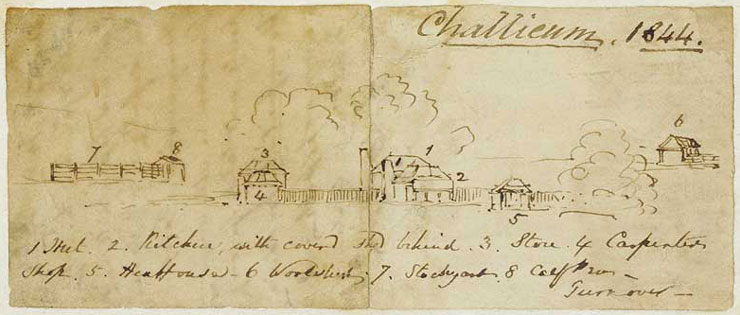 Challicum. 1844.
6
7 8 3 1
4 2
5
1 Hut. 2. Kitchen, with cover'd Shed behind. 3. Store. 4 Carpenters
Shop. 5. Hen House - 6 Woolshed, 7. Stockyard. 8 Calf Pen -
Turn over -